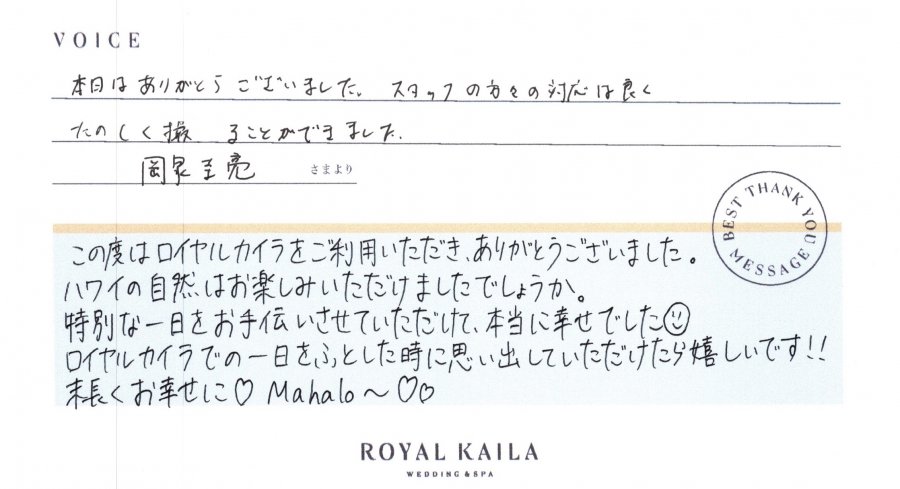 VOICE
本日はありがとうございました。スタッフの方々の対応は良く
たのしく撮ることができました。
岡泉至亮 さまより
BEST THANK YOU MESSAGE
この度はロイヤルカイラをご利用いただき、ありがとうございました。
ハワイの自然はお楽しみいただけましたでしょうか。
特別な一日をお手伝いさせていただけて、本当に幸せでした☺
ロイヤルカイラでの一日をふとした時に思い出していただけたら嬉しいです!!
末長くお幸せに♡ Mahalo〜♡♡
ROYAL KAILA
WEDDING & SPA